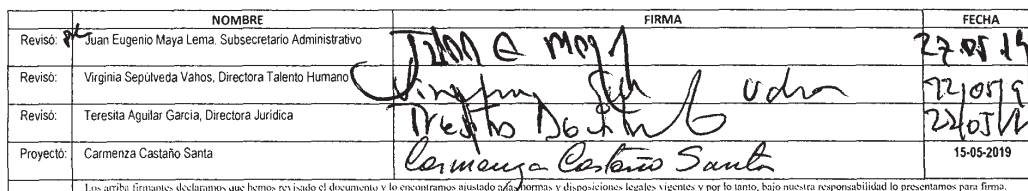 NOMBRE FIRMA FECHA
Revisó: Juan Eugenio Maya Lema. Subsecretario Administrativo Juan E Maya 27.05.19
Revisó: Virginia Sepúlveda Vahos, Directora Talento Humano 22/05/19
Revisó: Teresita Aguilar Garcia, Directora Jurídica 22/05/
Proyectó: Carmenza Castaño Santa Carmenza Castaño Santa 15-05-2019
Los arriba firmantes declaramos que hemos revisado el documento y lo encontramos ajustado a las normas y disposiciones legales vigentes y por lo tanto, bajo nuestra responsabilidad lo presentamos para firma.